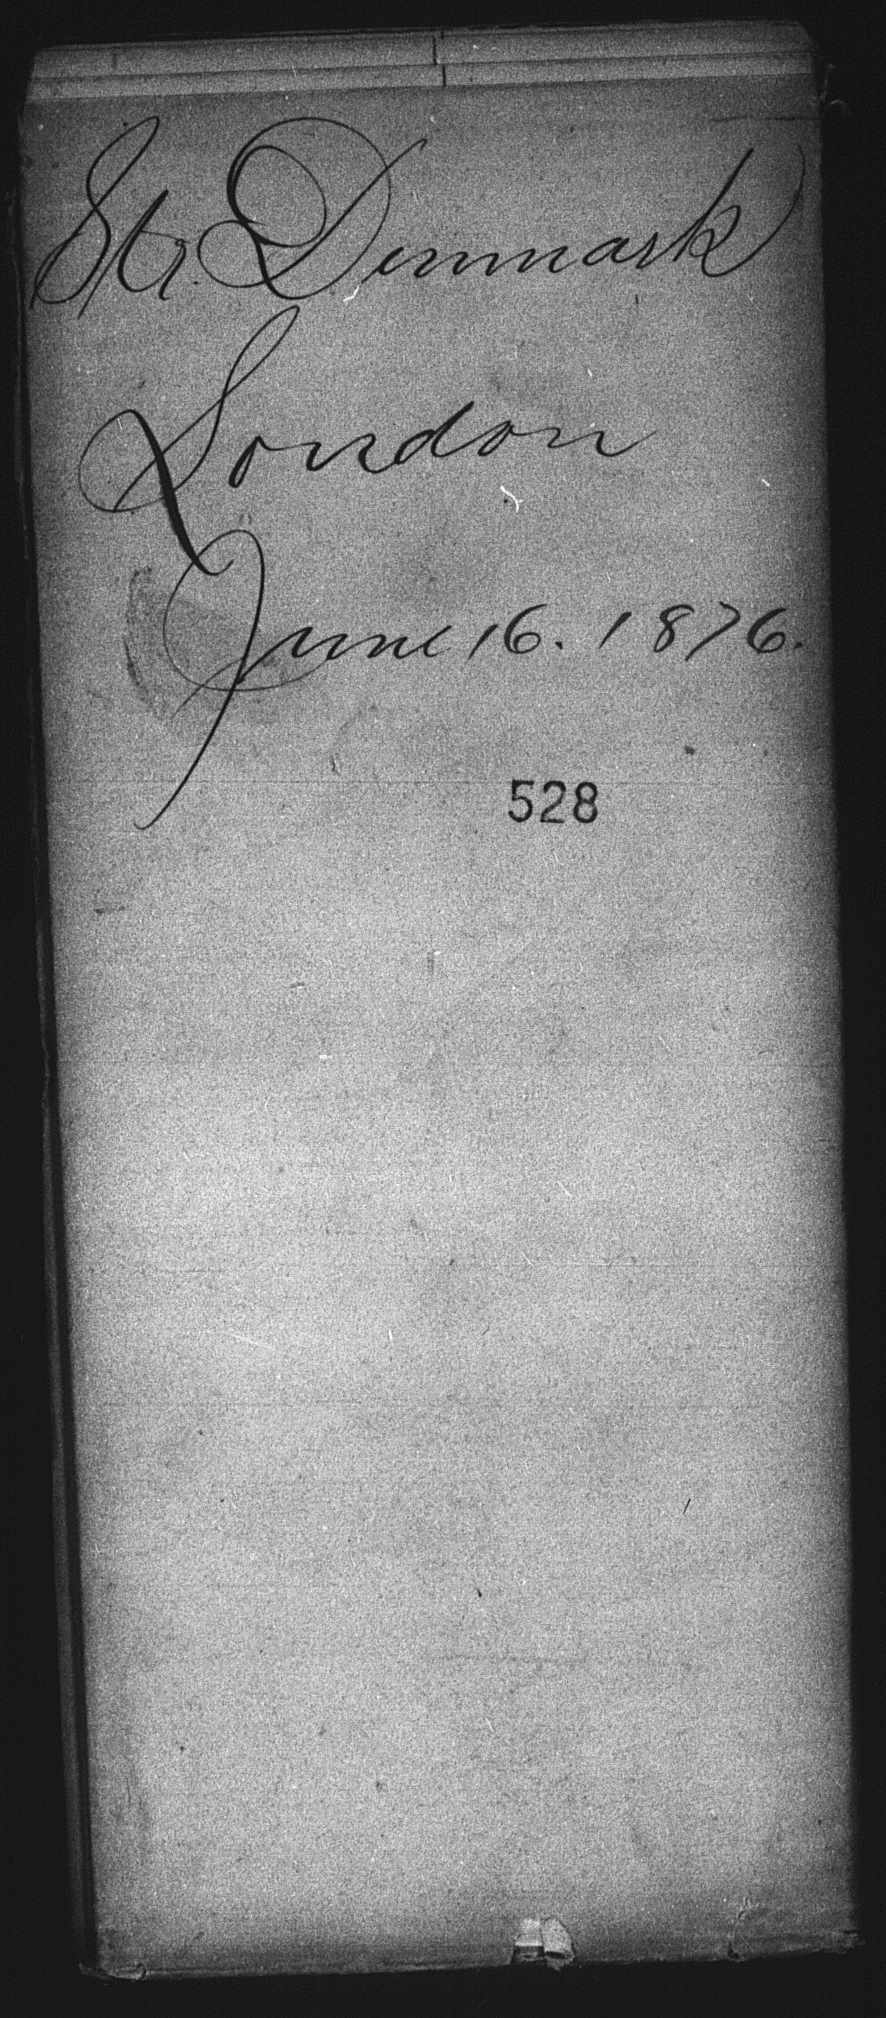 Str. Denmark
London
June 16. 1876.
528